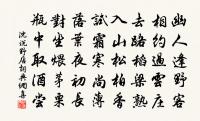 幽人逢野客
相約過雲庄
去路稻粱熟
入山松柏香
試霜寒尚薄
落葉長
對坐煨茅栗
瓶中取酒嘗
沈説野居詞典網喜